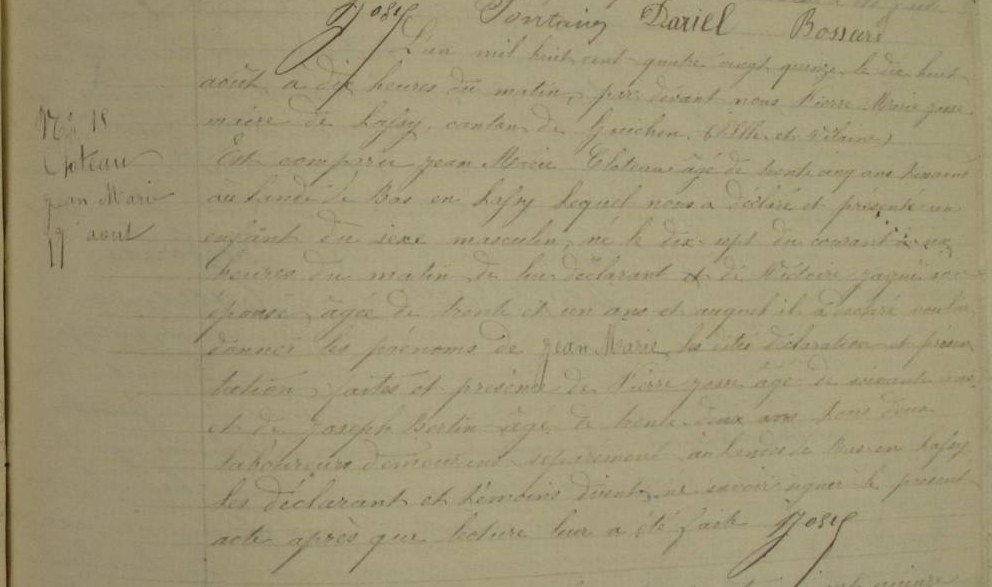 Josse Fontaine Dariel Bossard
L'an mil huit cent quatre vingt quinze le dix huit
août à dix heures du matin, par devant nous Pierre Marie Josse
maire de Lassy, canton de Guichen, (Ille et Vilaine)
Nº 18
Cloteau
Jean Marie
17 août
Est comparu Jean Marie Cloteau âgé de trente cinq ans
au de Bas en Lassy lequel nous a déclaré et présenté un
enfant du sexe masculin, né le dix sept du courant à six
heures du matin de lui déclarant et de Victoire son
épouse, âgée de trente et un ans et auquel il a déclaré vouloir
donner les prénoms de Jean Marie, les dites déclaration et présen
tation faites et présence de Pierre Josse âgé de soixante ans
et de Joseph Bertin âgé de trente deux ans tous deux
laboureurs demeurant séparément au Bas en Lassy
les déclarant et témoins disent ne savoir signer le présent
acte après que lecture leur a été faite Josse